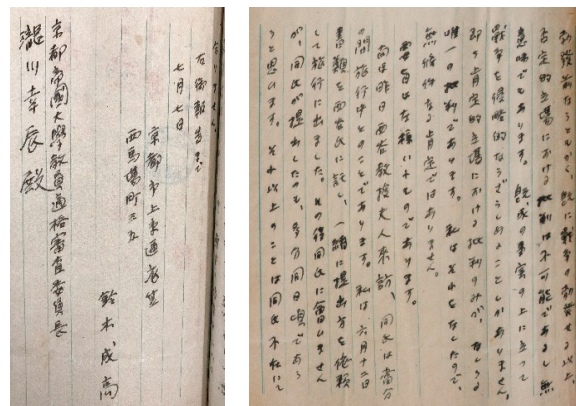 勃發前ならともかく、既に戰爭の勃發せる以上、
否定的立場における批判は不可能であるし無
意味でもあります。既成の事實の上に立つて
戰爭を侵略的ならざらしめることしかありません
即ち肯定的立場における批判のみが、なしうる
唯一の批判であります。私はそれをなしたので、
無條件なる肯定ではありません。
要旨は左樣いふものであります。
尚ほ昨日西谷教授夫人來訪、同氏は當分
の間旅行中とのことであります。私は六月十二日
書類を西谷氏に託し、一緒に提出方を依賴
して旅行に出ました。その後同氏に會ひません
が、同氏が提出したのも、多分同日頃であら
うと思ひます。それ以上のことは同氏不在にて
なりません。
右御報告まで
七月七日
京都市上京
西馬場町三五
鈴木成高
京都帝國大學教員適格審査委員長
瀧川幸辰殿